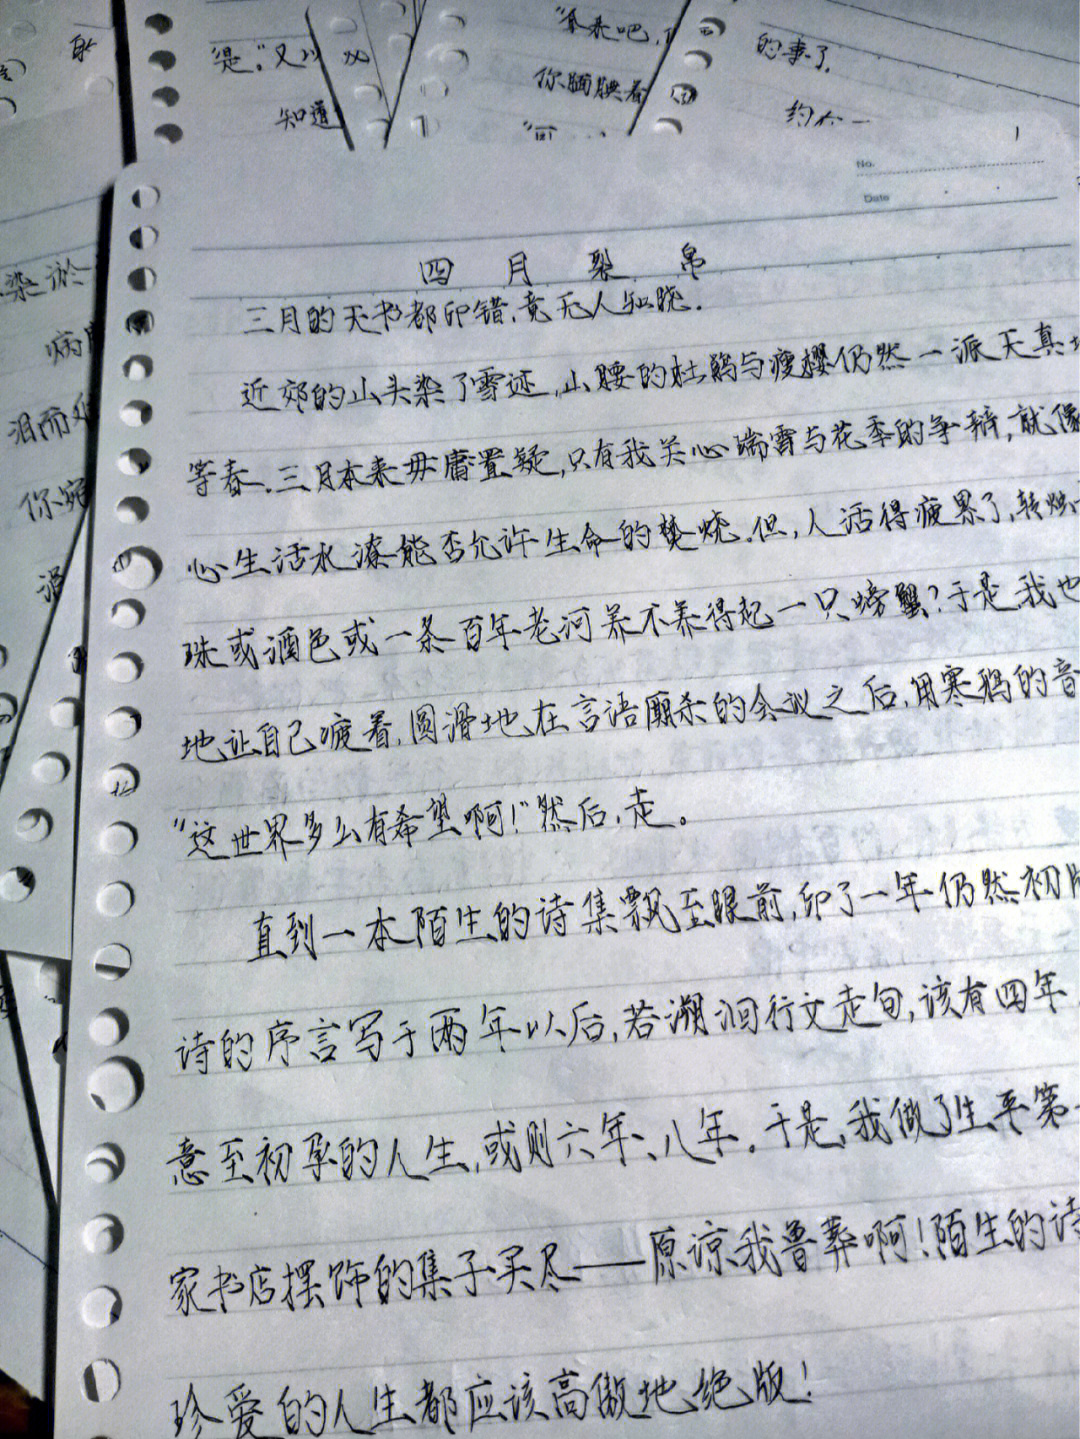 是。"又以
知道
"拿来吧,
你腼腆着
的事了.
约
1
No.
Date
染淤
病
泪而
你宛
四月裂帛
三月的天书都印错,竟无人知晓.
近郊的山头染了雪迹,山腰的杜鹃与瘦樱仍然一派天真地
等春.三月本来毋庸置疑,只有我关心瑞雪与花季的争辩,就像
心生活水潦能否允许生命的焚烧.但,人活得疲累了,转
珠或酒色或一条百年老河养不养得起一只螃蟹?于是,我也
地让自己疲着,圆滑地在言语厮杀的会议之后,用寒鸦的音
"这世界多么有希望啊!"然后,走。
直到一本陌生的诗集飘至眼前,印了一年仍然初版
诗的序言写于两年以后,若溯洄行文走句,该有四年
意至初孕的人生,或则六年、八年。于是,我做了生平第
家书店摆饰的集子买尽——原谅我鲁莽啊!陌生的诗
珍爱的人生都应该高傲地绝版!